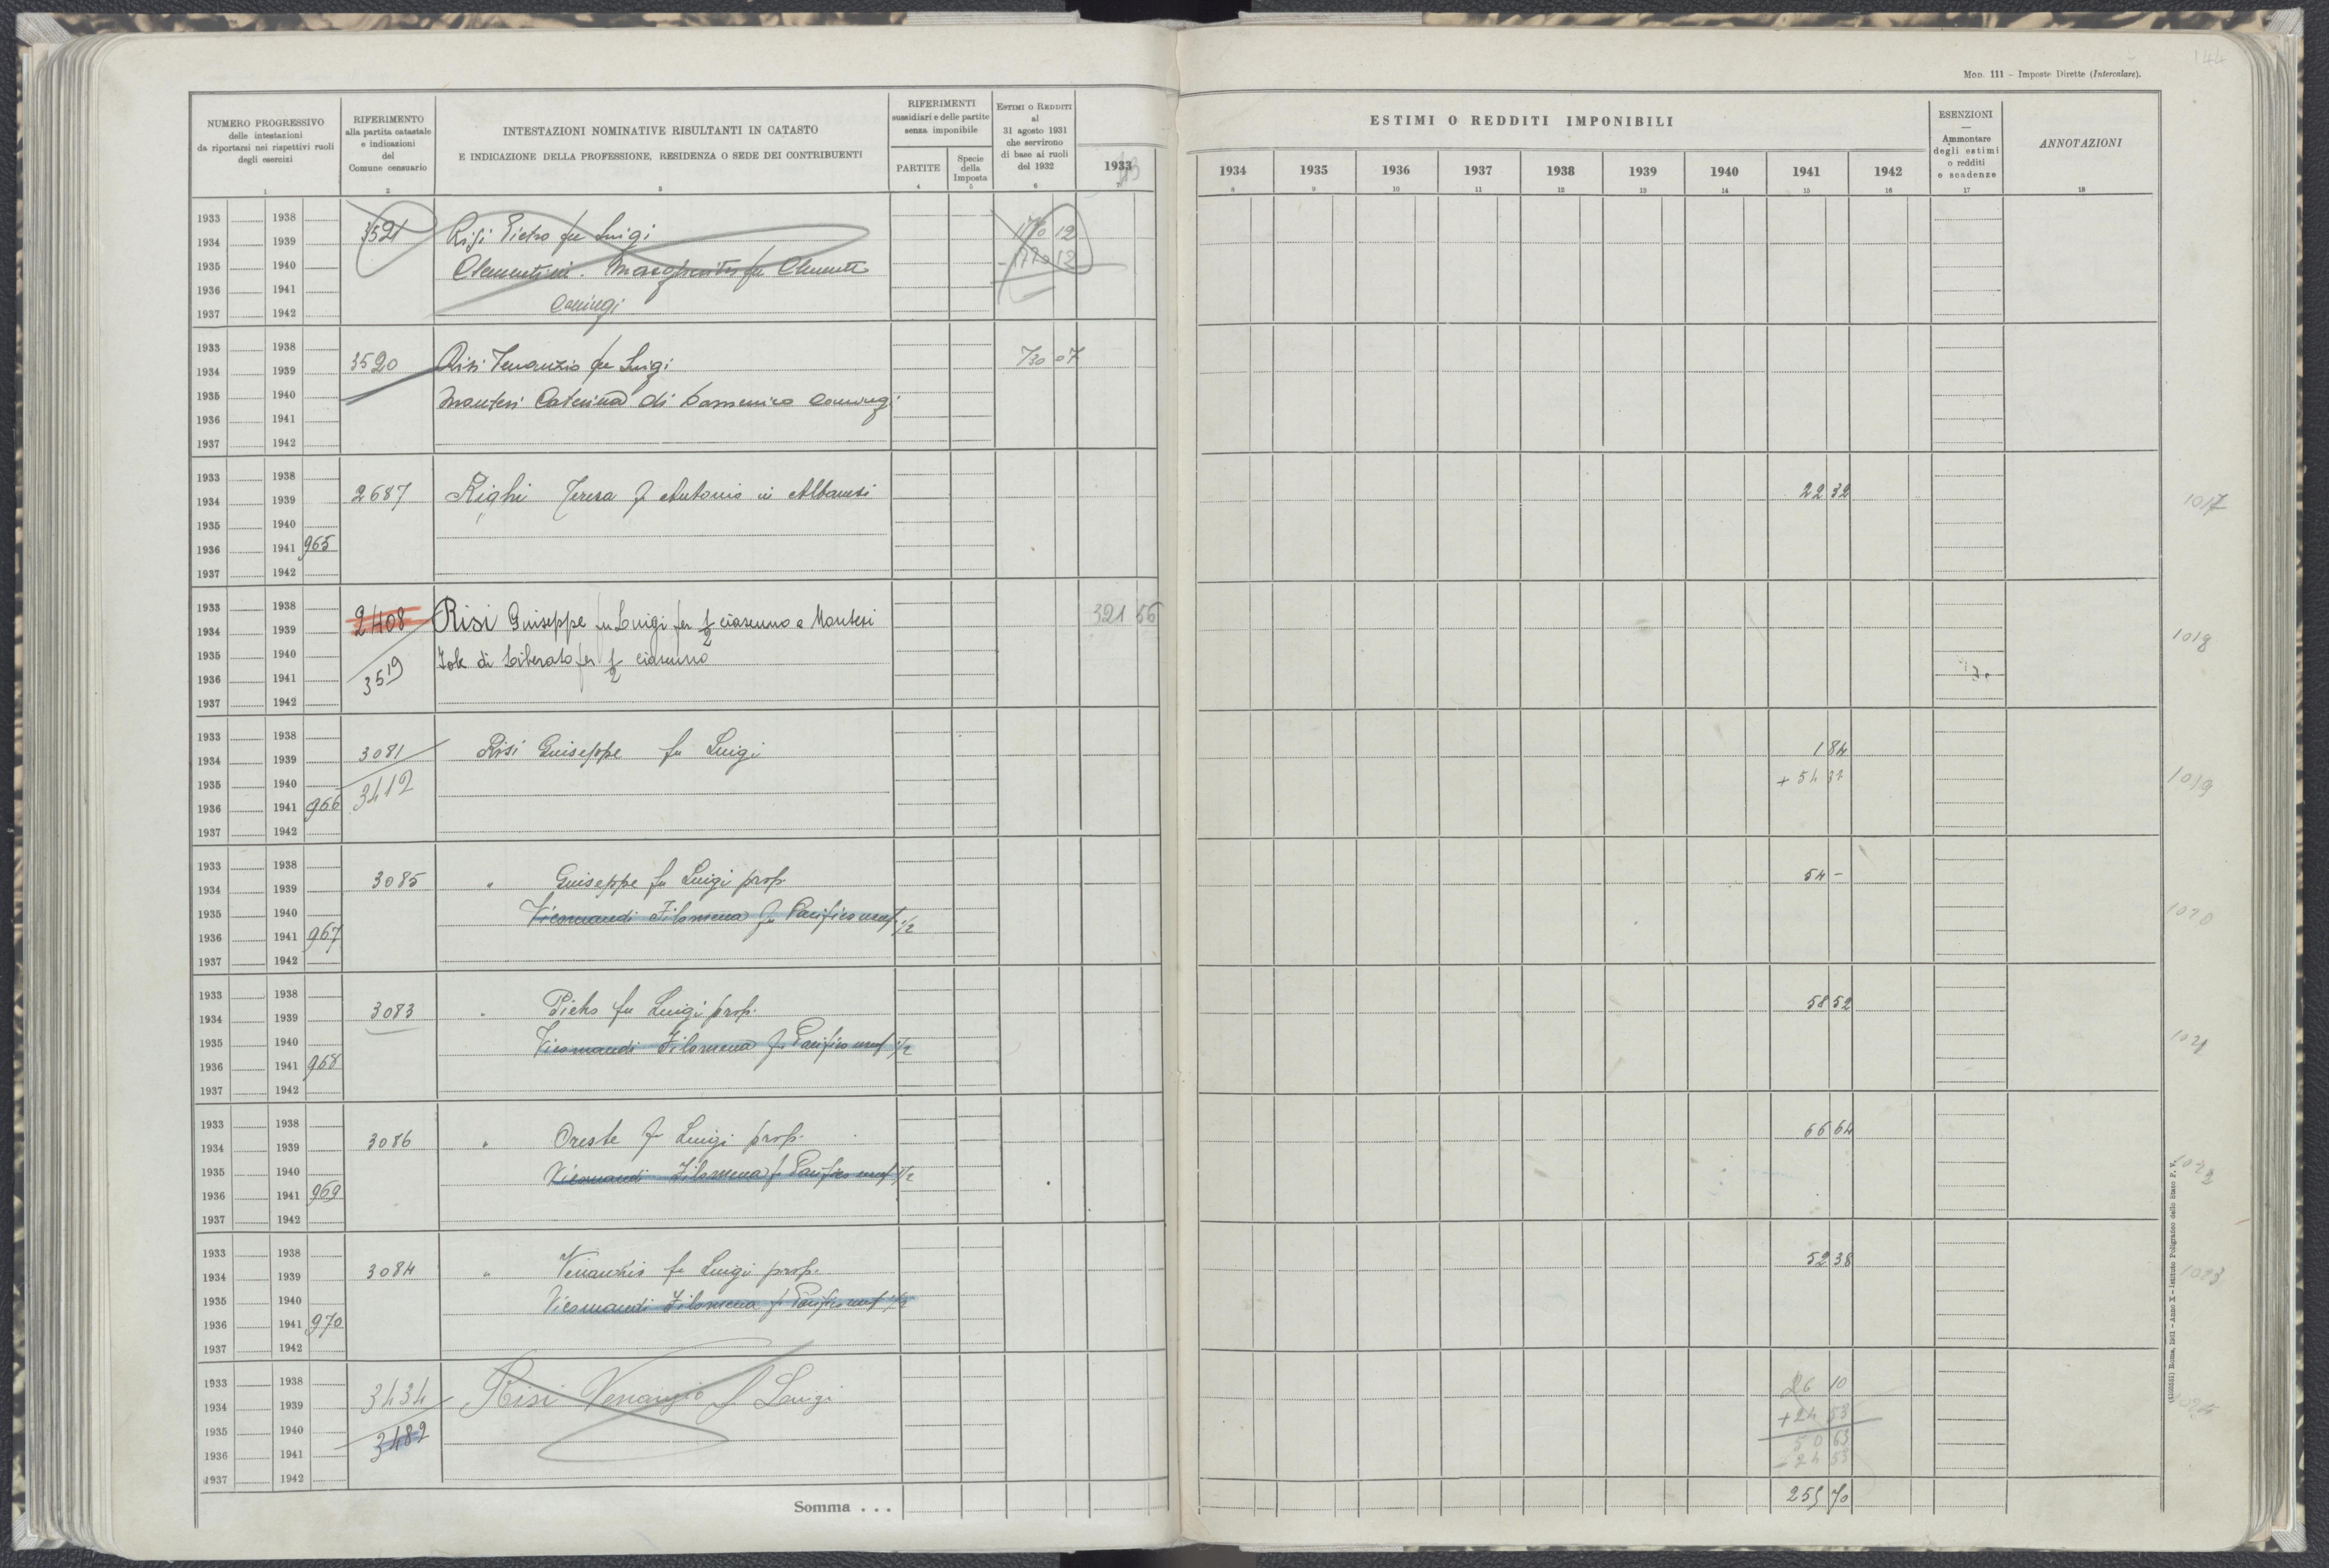 144
MOD. 111 – Imposte Dirette (Intercalare).
NUMERO PROGRESSIVO delle intestazioni da riportarsi nei rispettivi ruoli degli esercizi
RIFERIMENTO alla partita catastale e indicazioni del Comune censuario
INTESTAZIONI NOMINATIVE RISULTANTI IN CATASTO
E INDICAZIONE DELLA PROFESSIONE, RESIDENZA O SEDE DEI CONTRIBUENTI
RIFERIMENTI sussidiari e delle partite senza imponibile
PARTITE
Specie della Imposta
ESTIMI O REDDITI al 31 agosto 1931 che servirono di base ai ruoli del 1932
1933
ESTIMI O REDDITI IMPONIBILI
1934 1935 1936 1937 1938 1939 1940 1941 1942
ESENZIONI — Ammontare degli estimi o redditi e scadenze
ANNOTAZIONI
1 2 3 4 5 6 7 8 9 10 11 12 13 14 15 16 17 18
1933 1938
1934 1939 3521 Risi Pietro fu Luigi
1935 1940 Clementini fu Clemente
1936 1941
1937 1942
1933 1938
1934 1939 3520 Risi Venanzio fu Luigi 730 07
1935 1940 Montesi Caterina di Domenico
1936 1941
1937 1942
1933 1938
1934 1939 2687 Righi Teresa f Antonio in Albanesi 22 32 1017
1935 1940
1936 1941 965
1937 1942
1933 1938
1934 1939 2408 Risi Giuseppe fu Luigi per 1/2 ciascuno e Montesi 321 56 1018
1935 1940 Iole di Liberato per 1/2 ciascuno
1936 1941 3519
1937 1942
1933 1938
1934 1939 3081 Risi Giuseppe fu Luigi 1 84
1935 1940 3412 + 54 31 1019
1936 1941 966
1937 1942
1933 1938
1934 1939 3085 " Giuseppe fu Luigi prop. 54 –
1935 1940 Vicomandi Filomena fu Pacifico usuf 1/2 1020
1936 1941 967
1937 1942
1933 1938
1934 1939 3083 " Pietro fu Luigi prop. 58 52
1935 1940 Vicomandi Filomena fu Pacifico usuf 1/2 1021
1936 1941 968
1937 1942
1933 1938
1934 1939 3086 " Oreste fu Luigi prop. 66 64
1935 1940 Vicomandi Filomena fu Pacifico usuf 1/2 1022
1936 1941 969
1937 1942
1933 1938
1934 1939 3084 " Venanzio fu Luigi prop. 52 38 1023
1935 1940 Vicomandi Filomena fu Pacifico usuf 1/2
1936 1941 970
1937 1942
1933 1938 26 10
1934 1939 3434 Risi Venanzio f Luigi + 24 53
1935 1940 3482 50 63
1936 1941 – 24 53
1937 1942
Somma . . . 255 70
Roma, 1931 – Anno X – Istituto Poligrafico dello Stato P. V.